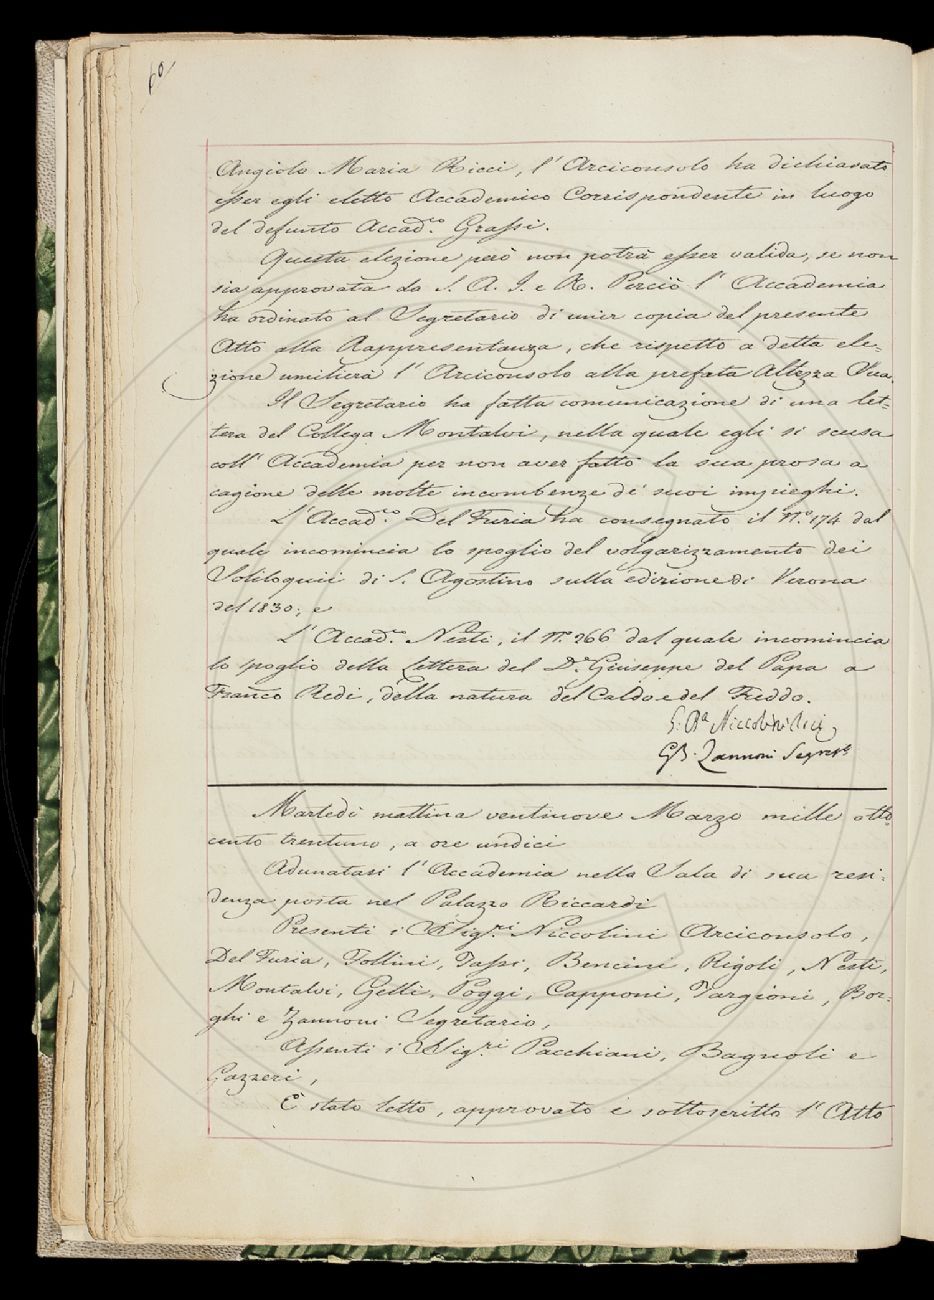 60/
Angiolo Maria Ricci, l'Arciconsolo ha dichiarato
esser egli eletto Accademico Corrispondente in luogo
del defunto Accad.co Grassi.
Questa elezione però non potrà esser valida, se non
sia approvata da S. A. I. e R. Perciò l'Accademia
ha ordinato al Segretario di unir copia del presente
Atto alla Rappresentanza, che rispetto a detta ele=
zione umilierà l'Arciconsolo alla prefata Altezza Sua.
Il Segretario ha fatta comunicazione di una let=
tera del Collega Montalvi, nella quale egli si scusa
coll'Accademia per non aver fatto la sua prosa a
cagione delle molte incombenze de' suoi impieghi.
L'Accad.co Del Furia ha consegnato il N.o 174 dal
quale incomincia lo spoglio del volgarizzamento dei
Soliloquii di S. Agostino sulla edizione di Verona
del 1830; e
L'Accad.co Nesti, il N.o 266 dal quale incomincia
lo spoglio della Lettera del D.r Giuseppe del Papa a
Franco Redi, della natura del Caldo e del Freddo.
G. Ba Niccolini
GB. Zannoni Segret.
Martedì mattina ventinove Marzo mille otto
cento trentuno, a ore undici
Adunatasi l'Accademia nella Sala di sua resi=
denza posta nel Palazzo Riccardi
Presenti i Sig.ri Niccolini Arciconsolo,
Del Furia, Follini, Tassi, Bencini, Rigoli, Nesti,
Montalvi, Gelli, Poggi, Capponi, Targioni, Bor=
ghi e Zannoni Segretario,
Assenti i Sig.ri Pacchiani, Bagnoli e
Gazzeri,
È stato letto, approvato e sottoscritto l'Atto